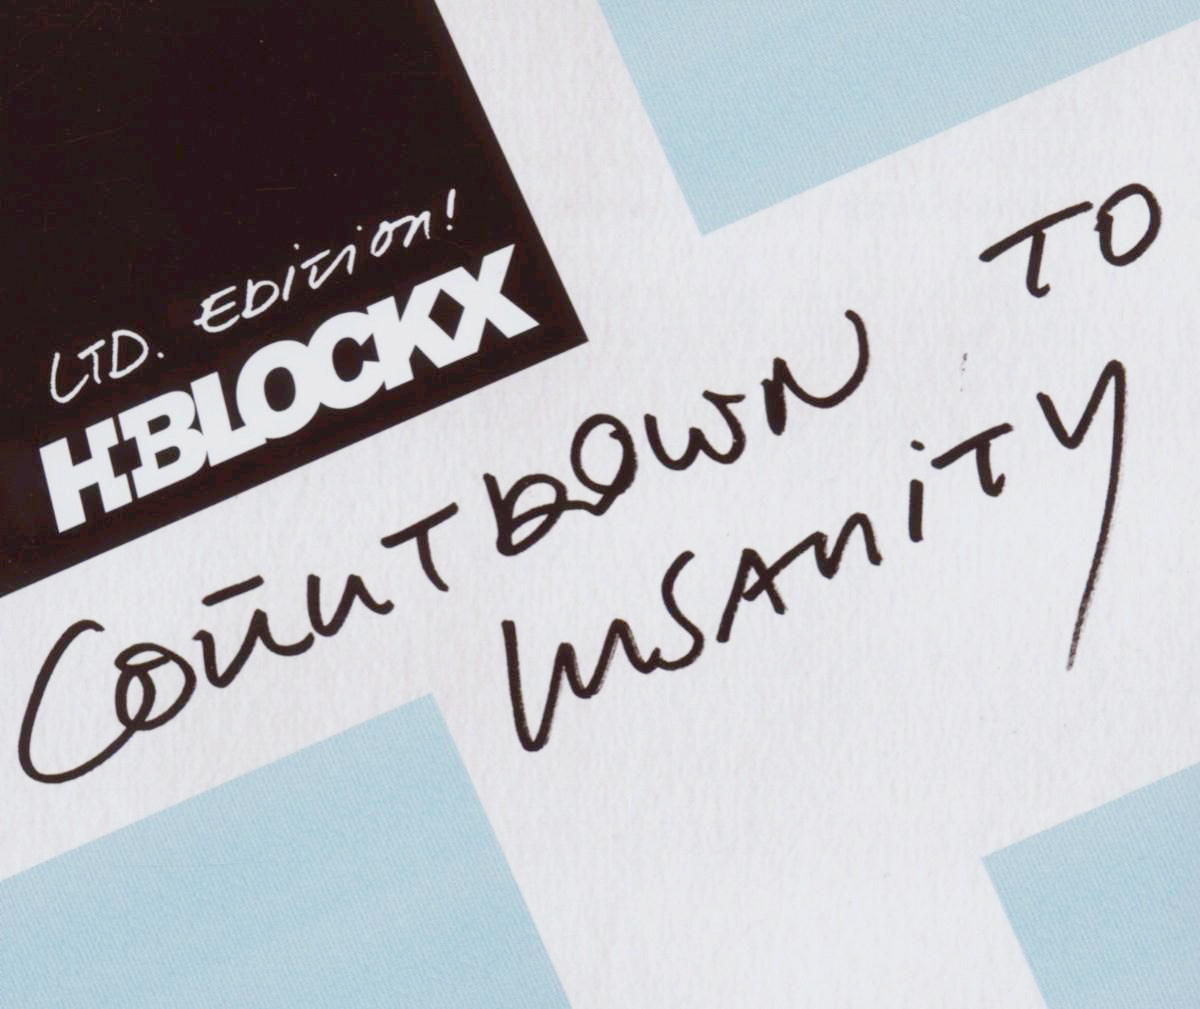 LTD. EDITION!
H-BLOCKX
COUNTDOWN TO
INSANITY